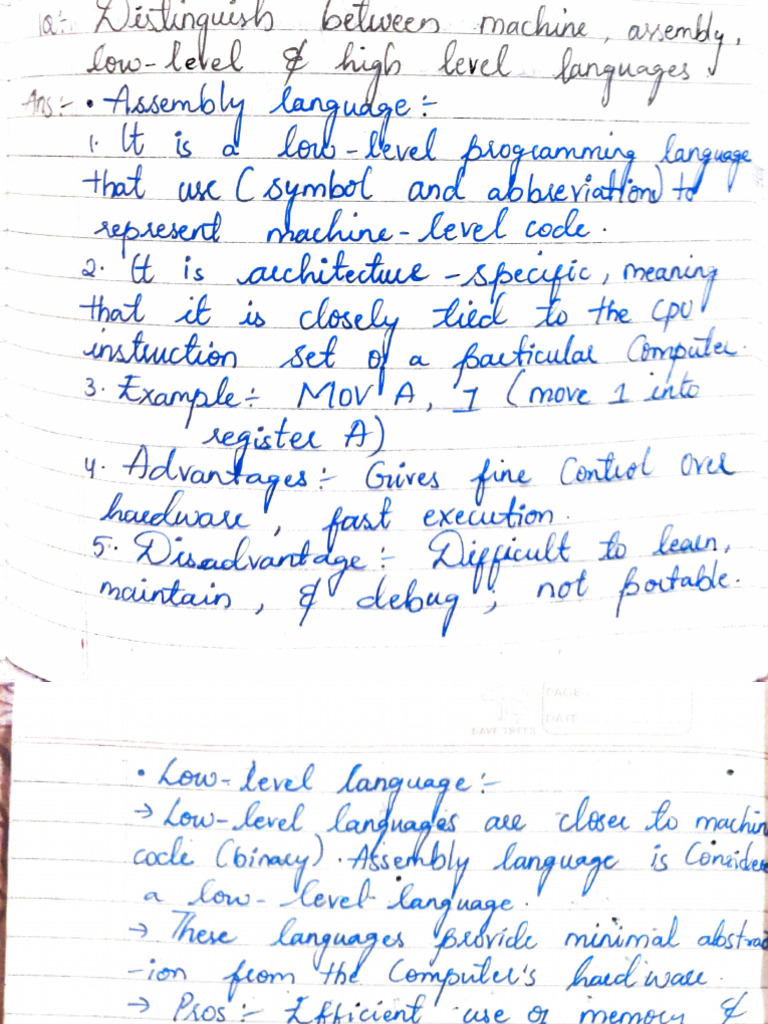 1Q:- Distinguish between machine, assembly,
low-level & high level languages
Ans:- • Assembly language:-
1. It is a low-level programming language
that use (symbol and abbreviation) to
represent machine-level code.
2. It is architecture-specific, meaning
that it is closely tied to the CPU
instruction set of a particular Computer.
3. Example:- MOV A, 1 (move 1 into
register A)
4. Advantages:- Gives fine Control over
hardware, fast execution.
5. Disadvantage:- Difficult to learn,
maintain, & debug, not portable.
PAGE
DATE
• Low-level language:-
→ Low-level languages are closer to machin
code (binary). Assembly language is Conside
a low-level language.
→ These languages provide minimal abstrac
-ion from the Computer's hardware.
→ Pros:- Efficient use of memory &